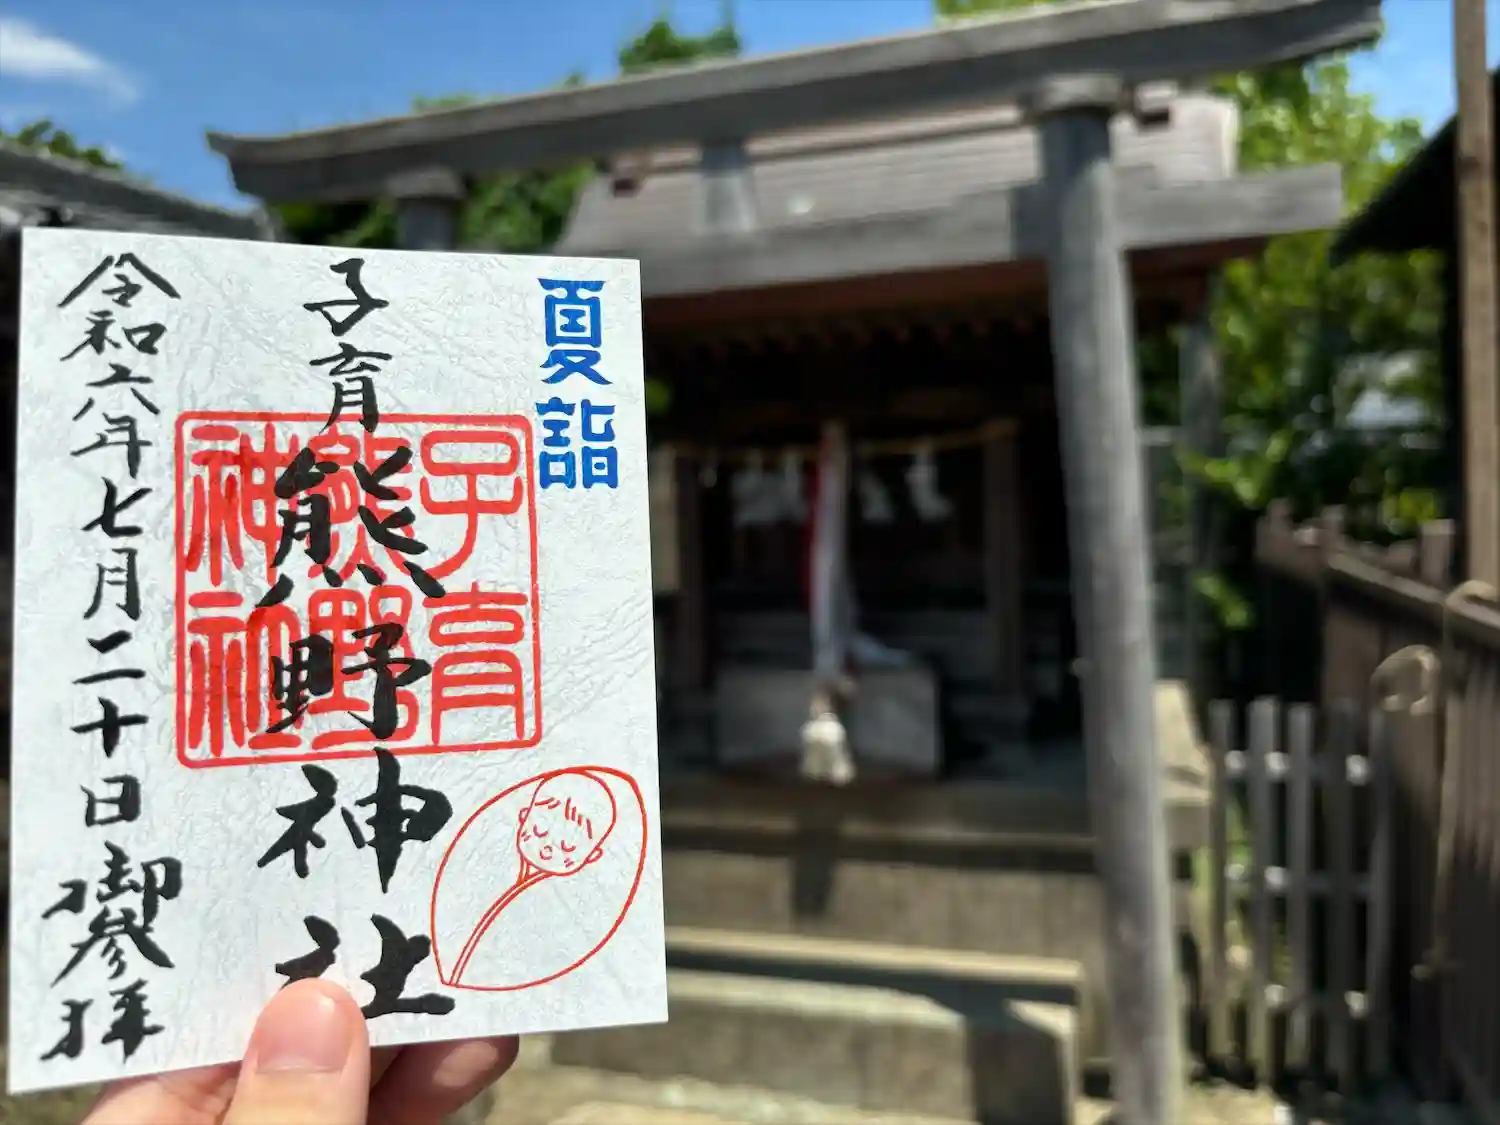 夏詣
子育
熊野神社
子育
熊野
神社
令和六年七月二十日
御参拝